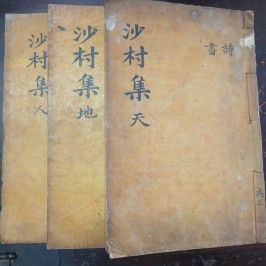 沙村集 天
詩
書
共三
沙村集 地
沙村集 人